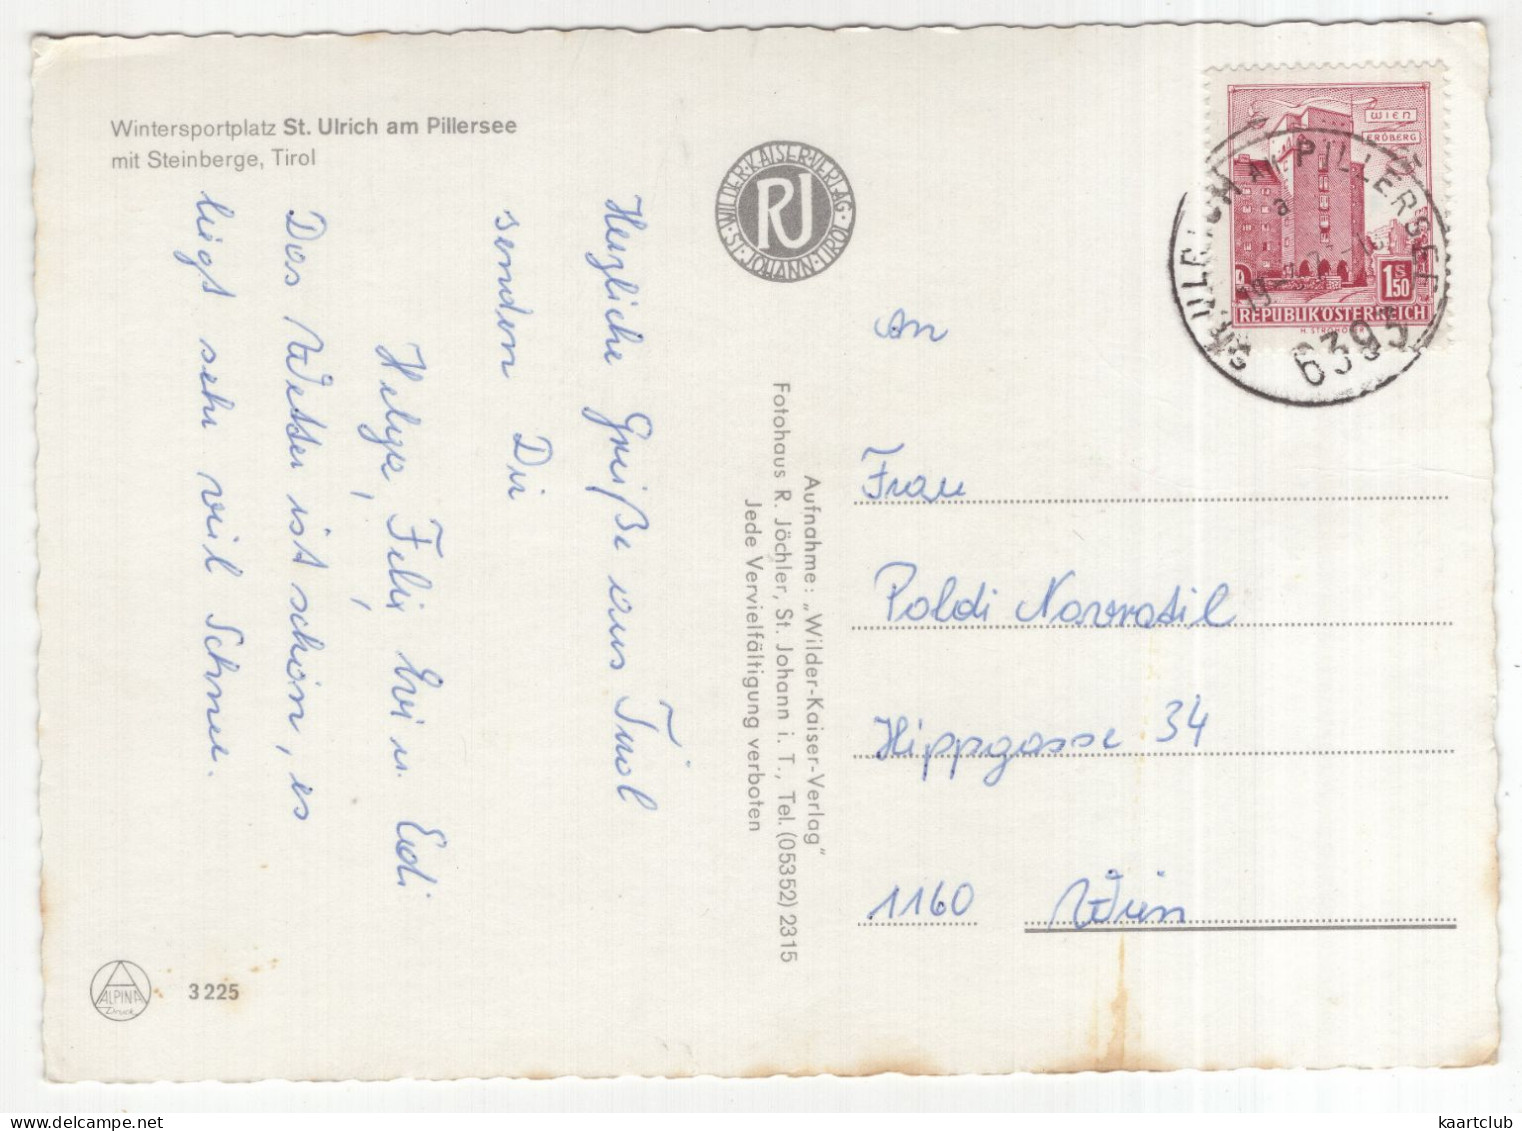 Wintersportplatz St. Ulrich am Pillersee
mit Steinberge, Tirol
Herzliche Grüße aus Tirol
senden Dir
Helga, Felix, Evi u. Edi
Das Wetter ist schön, es
liegt sehr viel Schnee.
ALPINA
Druck
3 225
WILDER-KAISER-VERLAG
ST. JOHANN-TIROL
RJ
Aufnahme: „Wilder-Kaiser-Verlag"
Fotohaus R. Jöchler, St. Johann i. T., Tel. (05352) 2315
Jede Vervielfältigung verboten
WIEN
ERDBERG
1 S 50
REPUBLIK ÖSTERREICH
ST. ULRICH AM PILLERSEE
6393
An
Frau
Poldi Nawratil
Hippgasse 34
1160 Wien
kaartclub